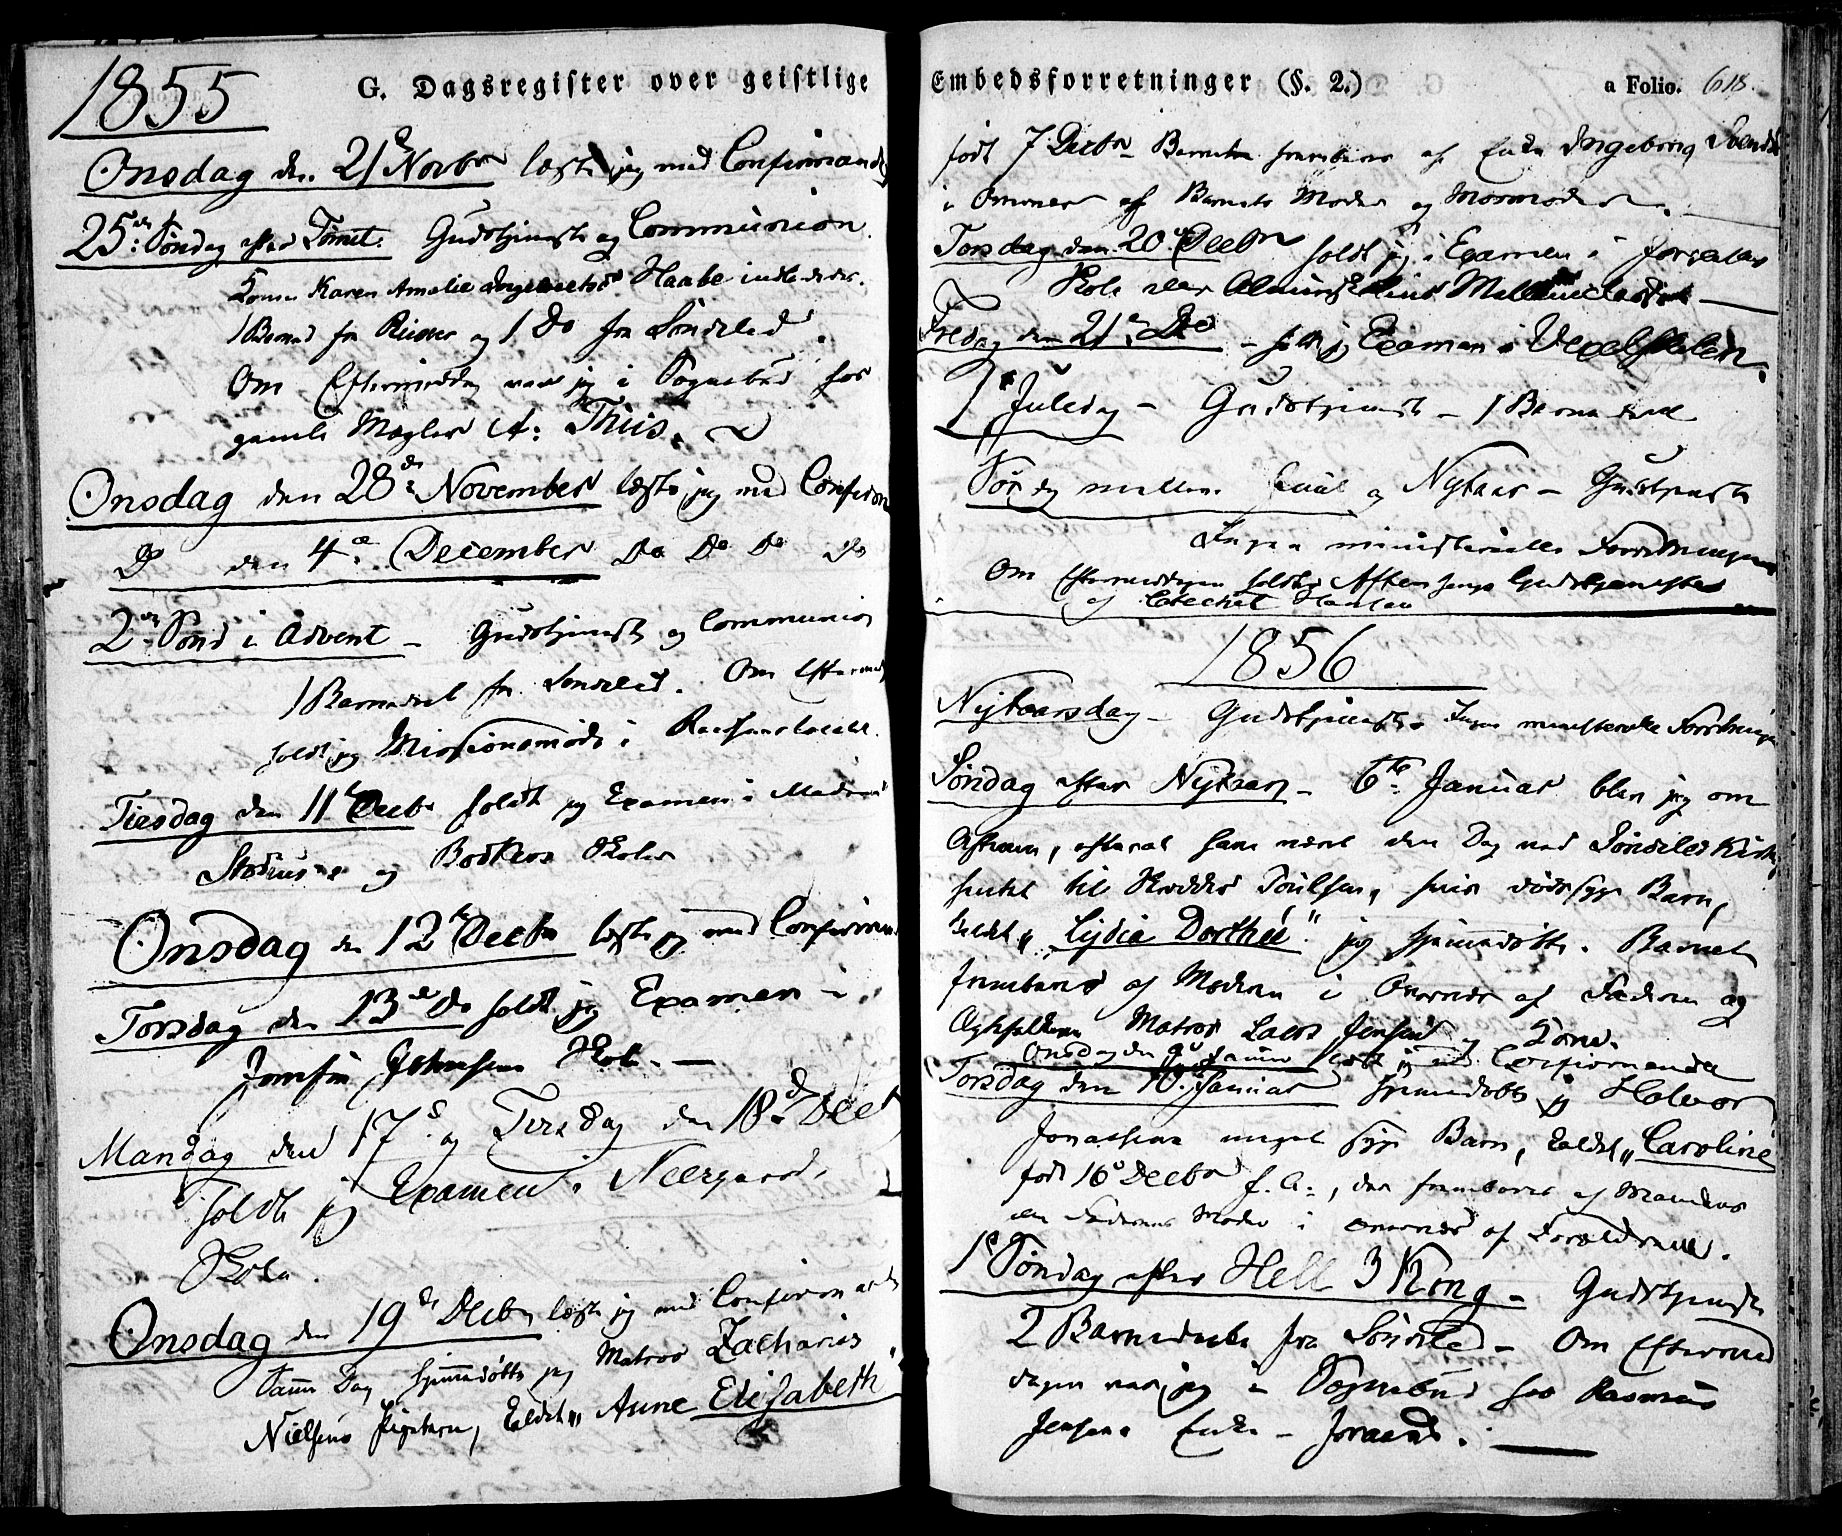 1855
G. Dagsregister over geistlige
Onsdag den 21 Novbr læste jeg med Confirmand
25de Søndag efter Trinit. Gudstjeneste og Communion.
Konen Karen Amalie Haabe indlededes.
1 Barned fra Riisøer og 1 Do fra Søndeled.
Om Eftermiddag var jeg i Sognebud hos
gamle Mægler A: Thiis.
Onsdag den 28de November læste jeg med Confirm
Do den 4de December Do Do Do Do
2den Sønd i Advent - Gudstjeneste og Communion
1 Barnedaab fra Søndeled. Om Efterm
holdt jeg Missionsmøde i Raadhuuslocalet.
Tirsdag den 11te Decbr holdt jeg Examen i
og Skoler
Onsdag den 12te Decbr læste jeg med Confirman
Torsdag den 13de Do holdt jeg Examen i
Jomfru Johnsens Skole. —
Mandag den 17de og Tirsdag den 18de Dec
holdt jeg Examen i Neergaards
Skole.
Onsdag den 19de Decbr læste jeg med Confirmande
Samme Dag hjemmedøbte jeg Matros Zacharias
Nielsens Pigebarn, kaldet „Anne Elisabeth"
Embedsforretninger (§. 2.)
a Folio. 618.
født 7 Decbr. Barnet frembares af Enke Ingeborg Svends
i Overvær af Barnets Moder og Mormoder.
Torsdag den 20de Decbr holdt jeg Examen i
Skole eller Almueskolens
Fredag den 21de Do - holdt jeg Examen i Vexelskolen.
1ste Juledag - Gudstjeneste - 1 Barnedaab
Søndag mellem Juul og Nytaar - Gudstjeneste
Ingen ministerielle Forretninger
Om Eftermiddagen holdtes Aftensangs Gudstjeneste
af Catechet
1856
Nytaarsdag - Gudstjeneste. Ingen ministerielle Forretninger
Søndag efter Nytaar - 6te Januar blev jeg om
Aftenen, efterat have været den Dag ved Søndeled Kirke,
hentet til Skrædder Poulsen, hvis dødssyge Barn,
kaldet „Lydia Dorthea" jeg hjemmedøbte. Barnet
frembares af Moderen i Overvær af Faderen og
Ægtefolkene Matros Lars Jensen og Kone.
Onsdag den 9de Januar læste jeg med Confirmanderne
Torsdag den 10de Januar hjemmedøbte jeg Halvor
Jonassens meget syge Barn, kaldet „Caroline
født 16de Decbr f. A:, der frembares af
Faderens Moder i Overvær af Forældrene.
1ste Søndag efter Hell 3 Kong - Gudstjeneste
2 Barnedaab fra Søndeled - Om Eftermid
dagen var jeg i Sognebud hos Rasmus
Jensens Enke -